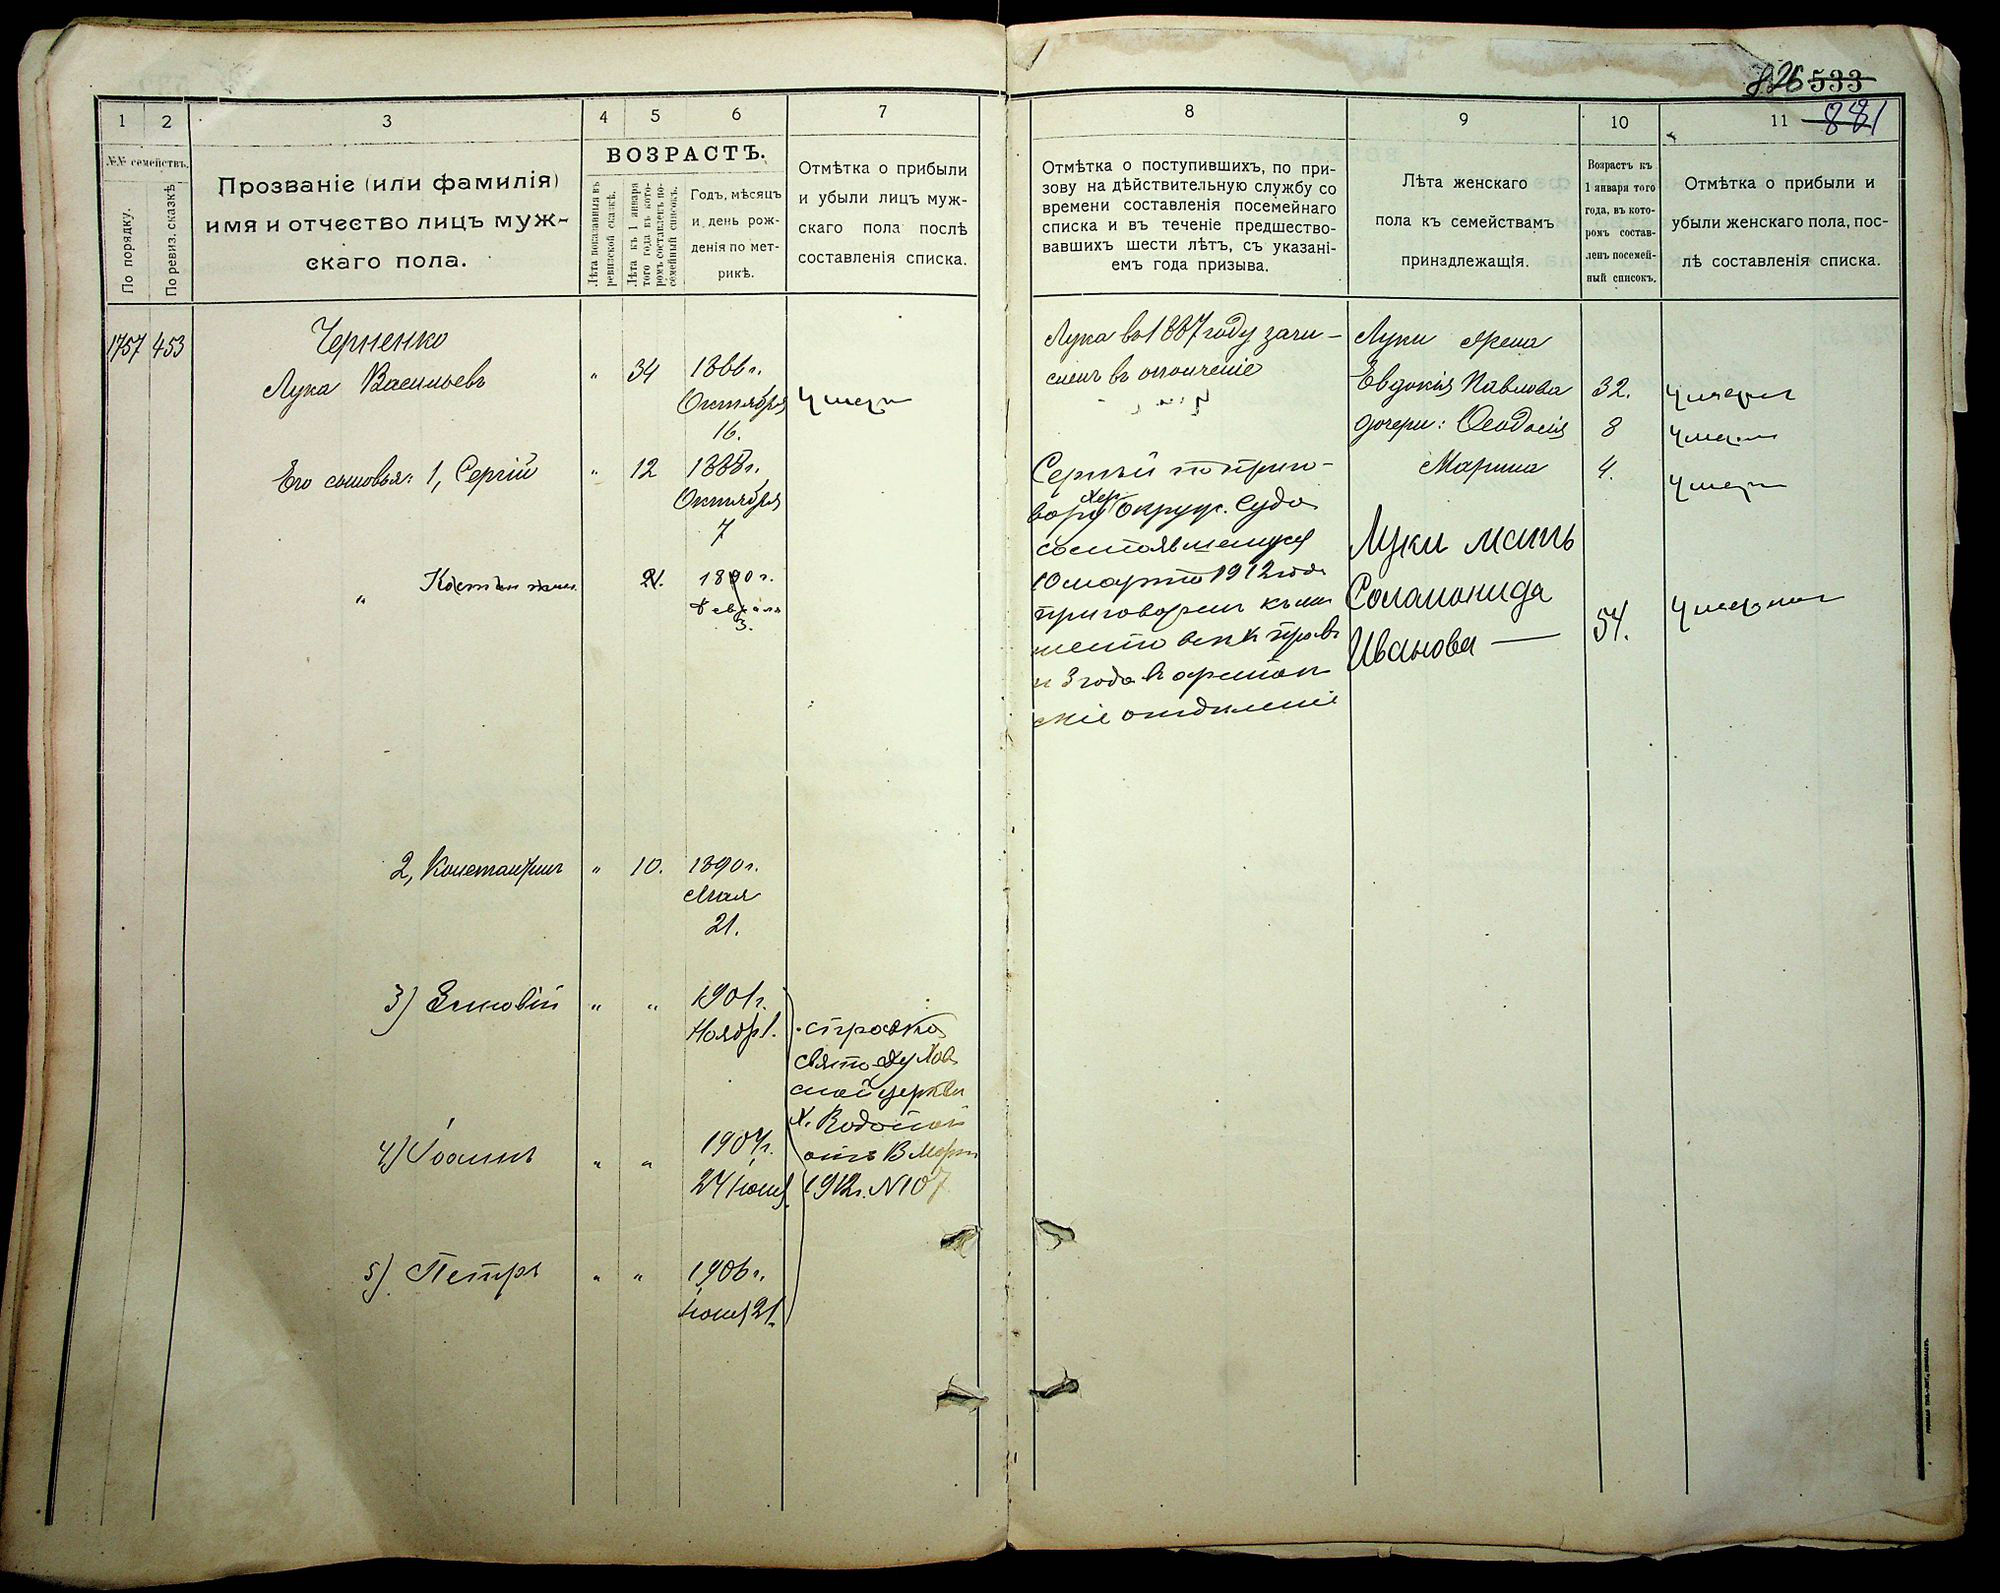 826 533
881
1 2 3 4 5 6 7
№№ семействъ.
По порядку.
По ревиз. сказкѣ
Прозваніе (или фамилія)
имя и отчество лицъ муж-
скаго пола.
ВОЗРАСТЪ.
Лѣта показанныя въ
ревизской сказкѣ.
Лѣта къ 1 января
того года въ кото-
ромъ составленъ по-
семейный списокъ.
Годъ, мѣсяцъ
и день рож-
денія по мет-
рикѣ.
Отмѣтка о прибыли
и убыли лицъ муж-
скаго пола послѣ
составленія списка.
1757 453
Черненко
Лука Васильевъ " 34 1866 г.
Октября Умеръ
16.
Его сыновья: 1, Сергій " 12 1888 г.
Октября
7
" 21. 1890 г.
Февраля
3.
2, Константинъ " 10. 1890 г.
Мая
21.
3) Зиновій " " 1901 г.
Ноябр 1.
справка
Свято-Духов
ской церкви
Х. Водяной
отъ 8 Март
1912 г. N 107
4) Іоаннъ " " 1904 г.
24 іюня
5) Петръ " " 1906 г.
іюня 21.
8 9 10 11
Отмѣтка о поступившихъ, по при-
зову на дѣйствительную службу со
времени составленія посемейнаго
списка и въ теченіе предшество-
вавшихъ шести лѣтъ, съ указані-
емъ года призыва.
Лѣта женскаго
пола къ семействамъ
принздлежащія.
Возрастъ къ
1 января того
года, въ кото-
ромъ состав-
ленъ посемей-
ный списокъ.
Отмѣтка о прибыли и
убыли женскаго пола, пос-
лѣ составленія списка.
Лука въ 1887 году зачи-
сленъ въ ополченіе
Сергѣй по приго-
вору Хер. Окруж. Суда
состоявшемуся
10 марта 1912 года
приговоренъ къ ли
шенію всѣхъ правъ
и 3 года въ арестан
скіе отдѣленіе
Луки жена
Евдокія Павлова 32. Умерла
дочери: Ѳеодосія 8 Умер.
Марина 4. Умер.
Луки мать
Соломонида
Иванова — 54. Умерла